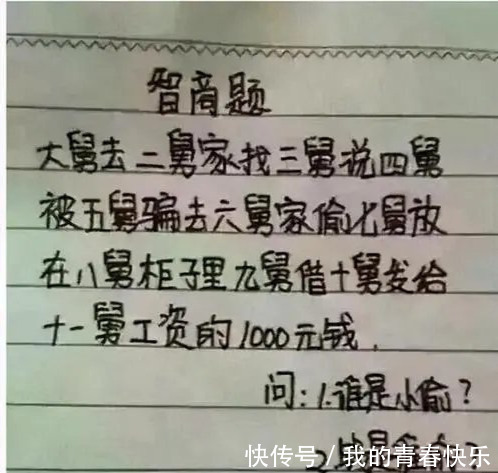 智商题
大舅去二舅家找三舅说四舅
被五舅骗去六舅家偷七舅放
在八舅柜子里九舅借十舅发给
十一舅工资的1000元钱.
问:1.谁是小偷?
快传号/我的青春快乐